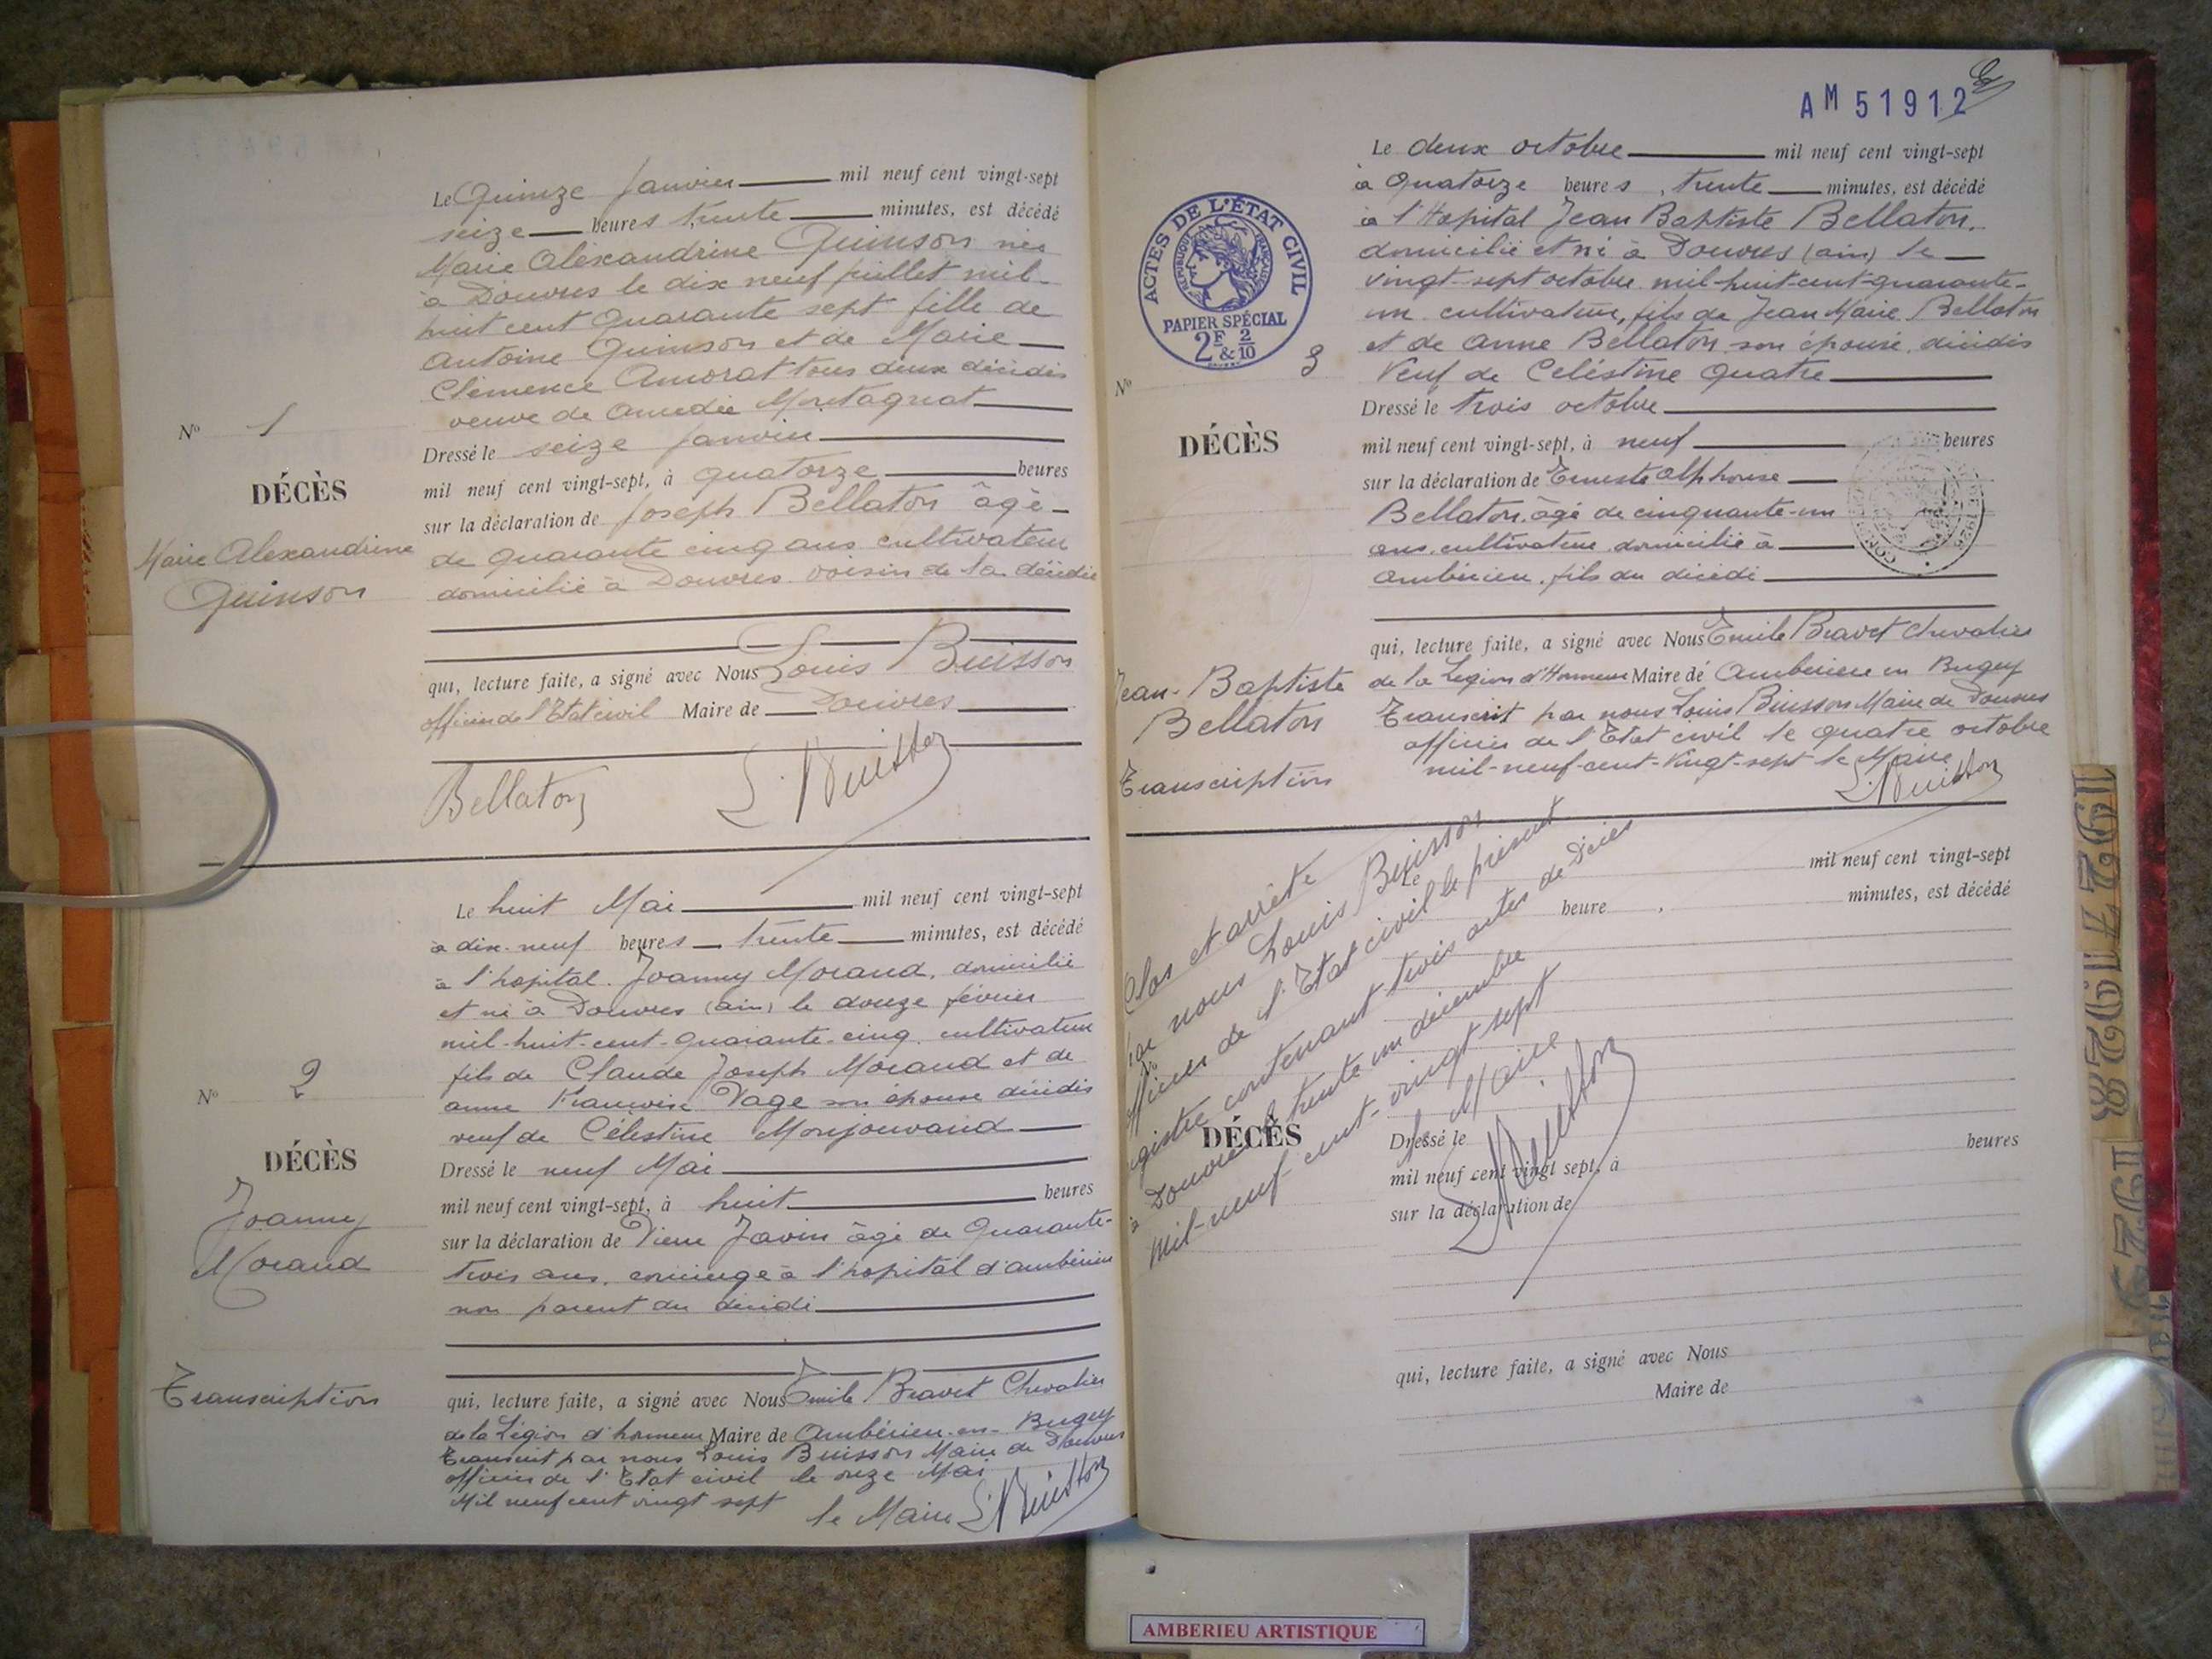 Le Quinze Janvier mil neuf cent vingt-sept
seize heures trente minutes, est décédé
Marie Aléxandrine Quinson née
à Douvres le dix neuf juillet mil-
huit cent quarante sept fille de
Antoine Quinson et de Marie
Clémence Amorat tous deux décédés
veuve de Amedée Montagnat
Nº 1
DÉCÈS
Marie Alexandrine
Quinson
Dressé le seize Janvier
mil neuf cent vingt-sept, à quatorze heures
sur la déclaration de Joseph Bellaton âgé
de quarante cinq ans cultivateur
domicilié à Douvres voisin de la décédée
qui, lecture faite, a signé avec Nous Louis Buisson
officier de l'Etat civil Maire de Douvres
Bellaton L. Buisson
Le huit Mai mil neuf cent vingt-sept
à dix-neuf heures trente minutes, est décédé
à l'hopital Joanny Morand, domicilié
et né à Douvres (ain) le douze février
mil-huit-cent-quarante-cinq, cultivateur
fils de Claude Joseph Morand et de
anne Françoise Page son épouse décédés
veuf de Célestine Monjouvand
Nº 2
DÉCÈS
Joanny
Morand
Transcription
Dressé le neuf Mai
mil neuf cent vingt-sept, à huit heures
sur la déclaration de Pierre Javin âgé de Quarante-
trois ans, concierge à l'hopital d'ambérieu
non parent du décédé
qui, lecture faite, a signé avec Nous Emile Bravet Chevalier
de la Légion d'honneur Maire de Ambérieu-en-Bugey
Transcrit par nous Louis Buisson Maire de Douvres
officier de l'Etat civil le onze Mai
Mil neuf cent vingt sept le Maire L. Buisson
AM 51912
Le deux octobre mil neuf cent vingt-sept
à Quatorze heures, trente minutes, est décédé
à l'Hopital Jean Baptiste Bellaton,
domicilié et né à Douvres (ain) le
vingt-sept octobre mil-huit-cent-quarante-
un cultivateur, fils de Jean Marie Bellaton
et de Anne Bellaton son épouse, décédés
Veuf de Celéstine Quatre
ACTES DE L'ÉTAT CIVIL
RÉPUBLIQUE FRANÇAISE
PAPIER SPÉCIAL
2F & 2/10
Nº 3
DÉCÈS
Jean-Baptiste
Bellaton
Transcription
Dressé le trois octobre
mil neuf cent vingt-sept, à neuf heures
sur la déclaration de Erneste alphonse
Bellaton, âgé de cinquante-un
ans, cultivateur domicilié à
Ambérieu, fils du décédé
qui, lecture faite, a signé avec Nous Emile Bravet Chevalier
de la Légion d'Honneur Maire de Ambérieu en Bugey
Transcrit par nous Louis Buisson Maire de Douvres
officier de l'Etat civil le quatre octobre
mil-neuf-cent-Vingt-sept le Maire
L. Buisson
Clos et arrêté
par nous Louis Buisson
officier de l'Etat civil le présent
registre contenant trois actes de Décès
à Douvres le trente un décembre
Mil-neuf-cent-vingt sept
le Maire
L. Buisson
Le mil neuf cent vingt-sept
heure , minutes, est décédé
Nº
DÉCÈS
Dressé le
mil neuf cent vingt sept, à heures
sur la déclaration de
qui, lecture faite, a signé avec Nous
Maire de
1927
1928
1929
AMBERIEU ARTISTIQUE